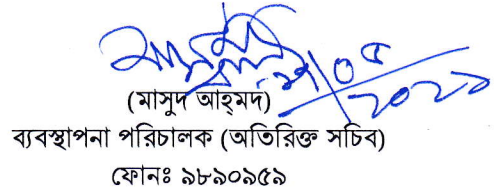 (মাসুদ আহ্‌মদ)
ব্যবস্থাপনা পরিচালক (অতিরিক্ত সচিব)
ফোনঃ ৯৮৯০৯৫৯